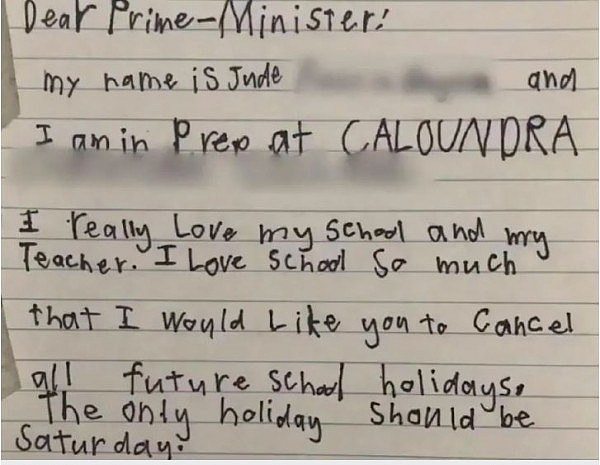 Dear Prime-Minister!
my name is Jude and
I am in Prep at CALOUNDRA
I really Love my school and my
Teacher. I Love school so much
that I would Like you to Cancel
all future school holidays.
The only holiday should be
Saturday.